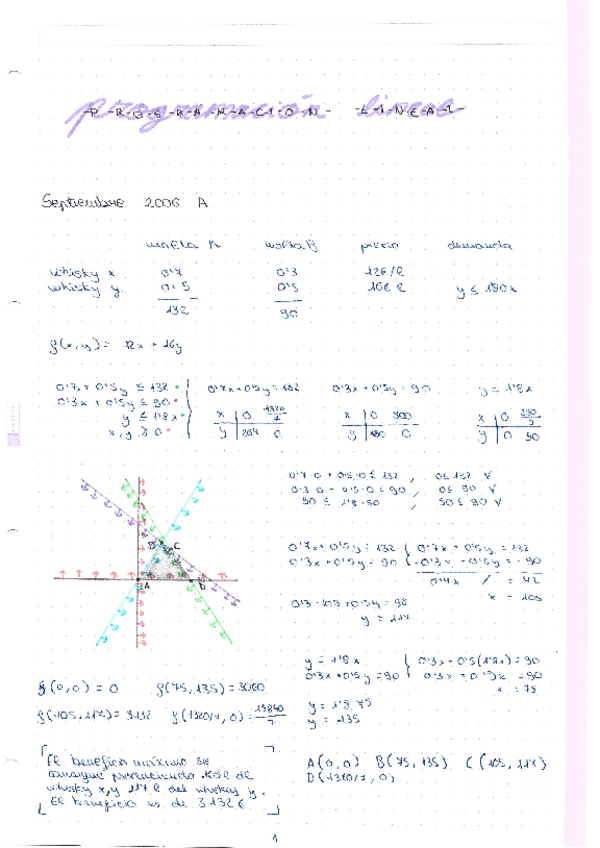 programación lineal
P-R-O-G-R-A-M-A-C-I-O-N- -L-I-N-E-A-L-
Septiembre 2006 A
malta A malta B precio demanda
whisky x 0'7 0'3 12€/l
whisky y 0'5 0'5 16€ l y ≤ 180x
132 90
f(x,y) = 12x + 16y
0'7x + 0'5y ≤ 132
0'3x + 0'5y ≤ 90
y ≤ 1'8x
x,y ≥ 0
0'7x+0'5y=132
x 0 1320/7
y 264 0
0'3x+0'5y=90
x 0 300
y 180 0
y = 1'8x
x 0
y 0 50
0'7·0 + 0'5·0 ≤ 132 , 0 ≤ 132 V
0'3·0 + 0'5·0 ≤ 90 , 0 ≤ 90 V
50 ≤ 1'8·50 , 50 ≤ 90 V
A B C D
0'7x+0'5y=132 0'7x+0'5y=132
0'3x+0'5y=90 -0'3x-0'5y=-90
0'4x / = 42
x = 105
0'3·105+0'5y=90
y = 117
y = 1'8x 0'3x+0'5(1'8x)=90
0'3x+0'5y=90 0'3x+0'9x=90
x=75
y = 1'8·75
y = 135
f(0,0) = 0 f(75,135)=3060
f(105,117)=3132 f(1320/7,0)=15840/7
A(0,0) B(75,135) C(105,117)
D(1320/7,0)
El beneficio máximo se
consigue produciendo 105l de
whisky x, y 117 l del whisky y.
El beneficio es de 3132€.
1